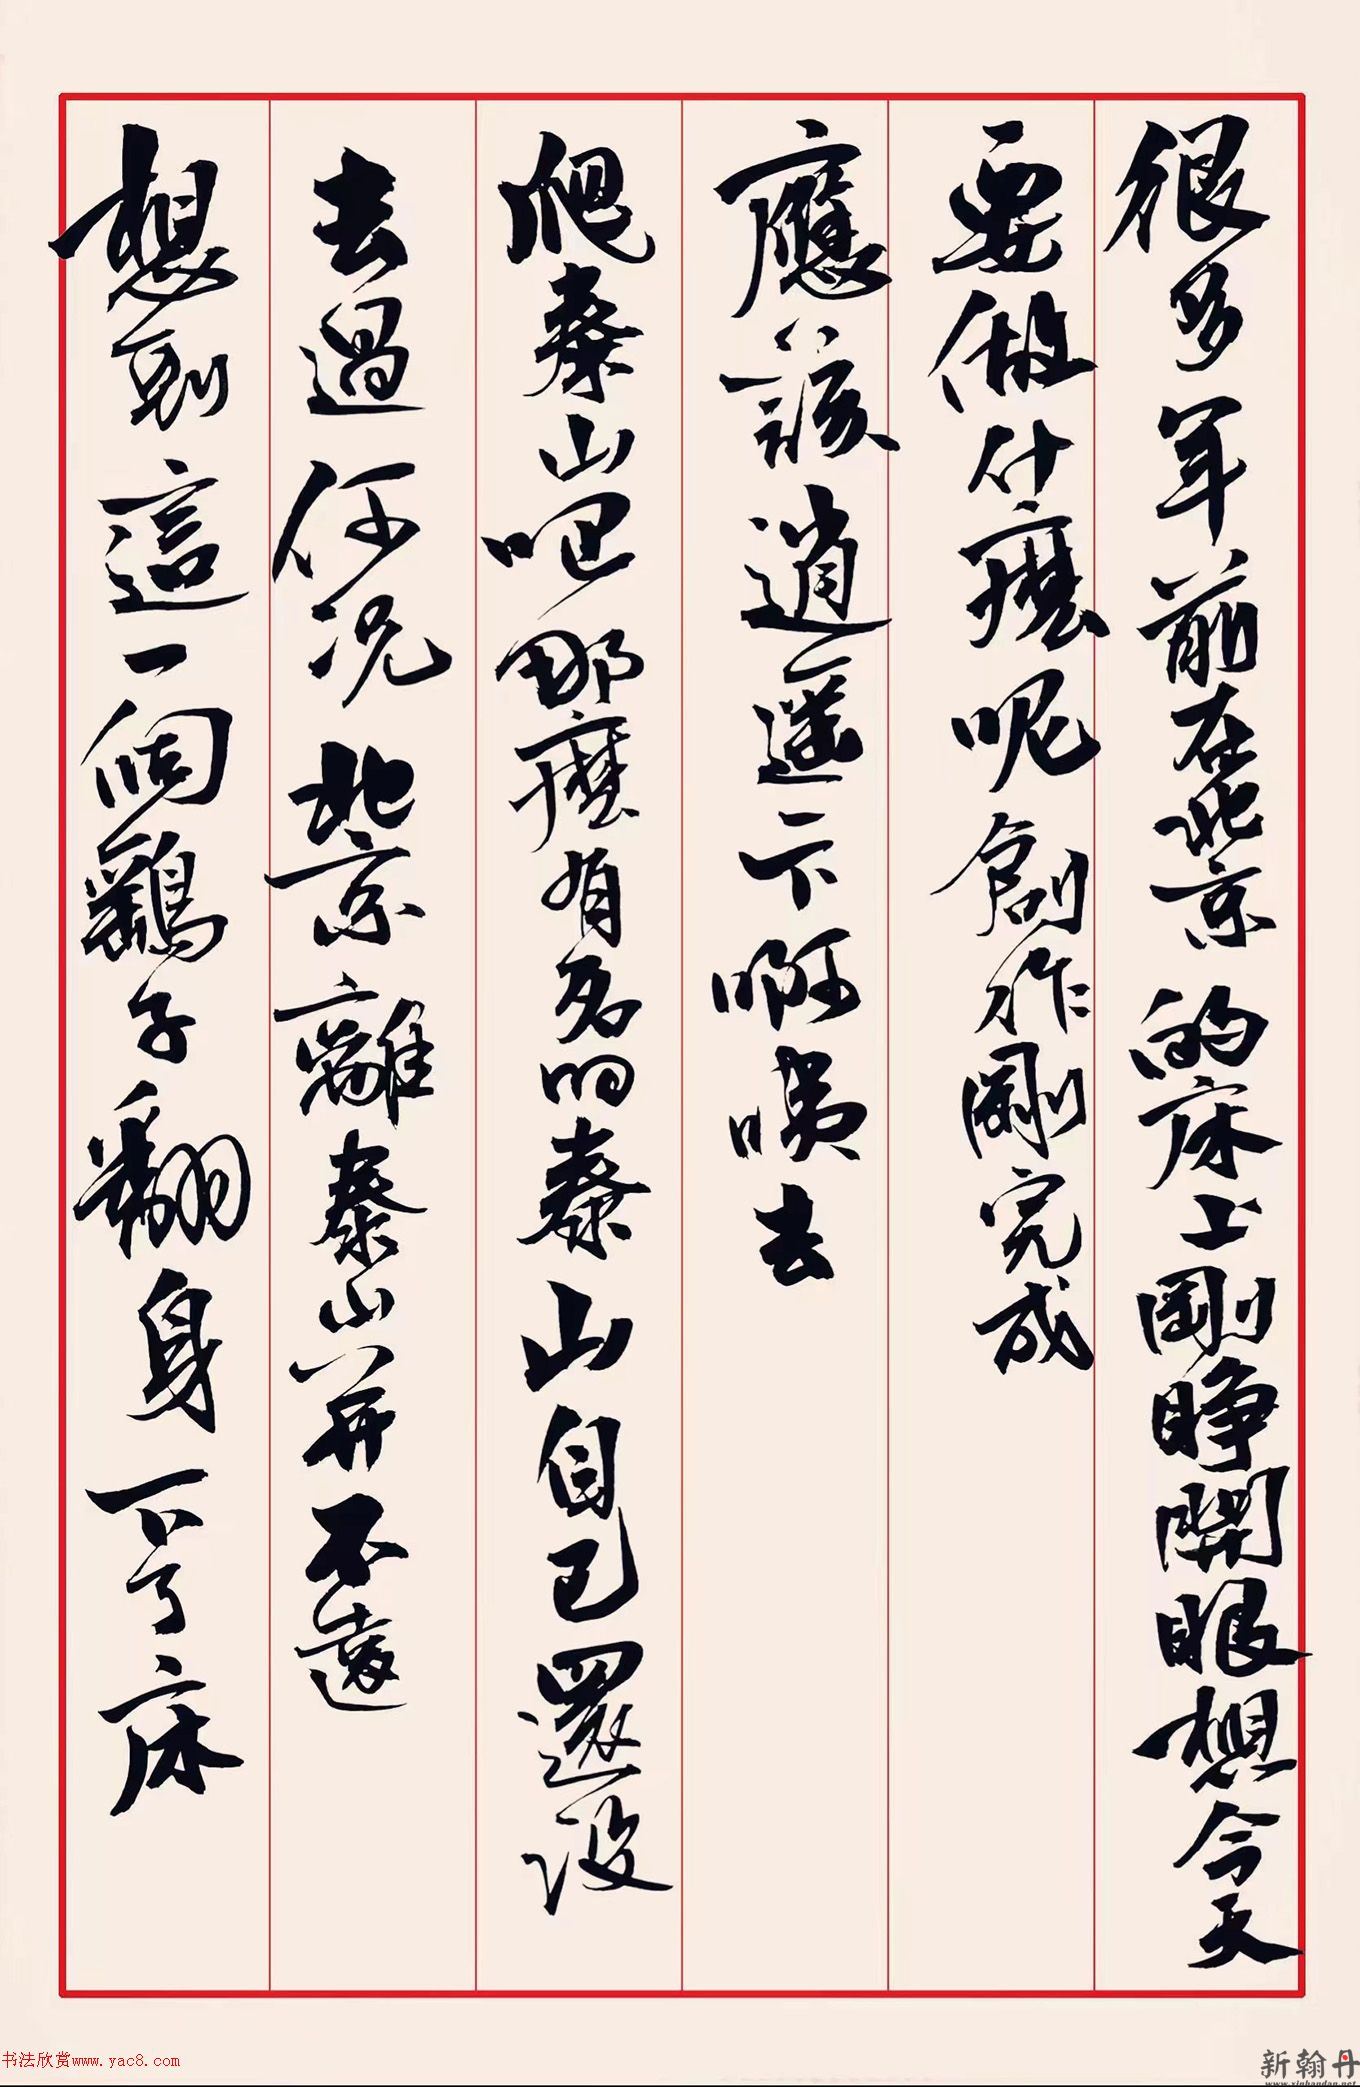 很多年前在北京的床上剛睁開眼想今天
要做什麽呢創作剛完成
應該逍遥一下啊咦去
爬泰山吧那麽有名的泰山自己還没
去過何况北京離泰山并不遠
想到這一個鷂子翻身下了床
书法欣赏www.yac8.com
新翰丹
www.xinhandan.net